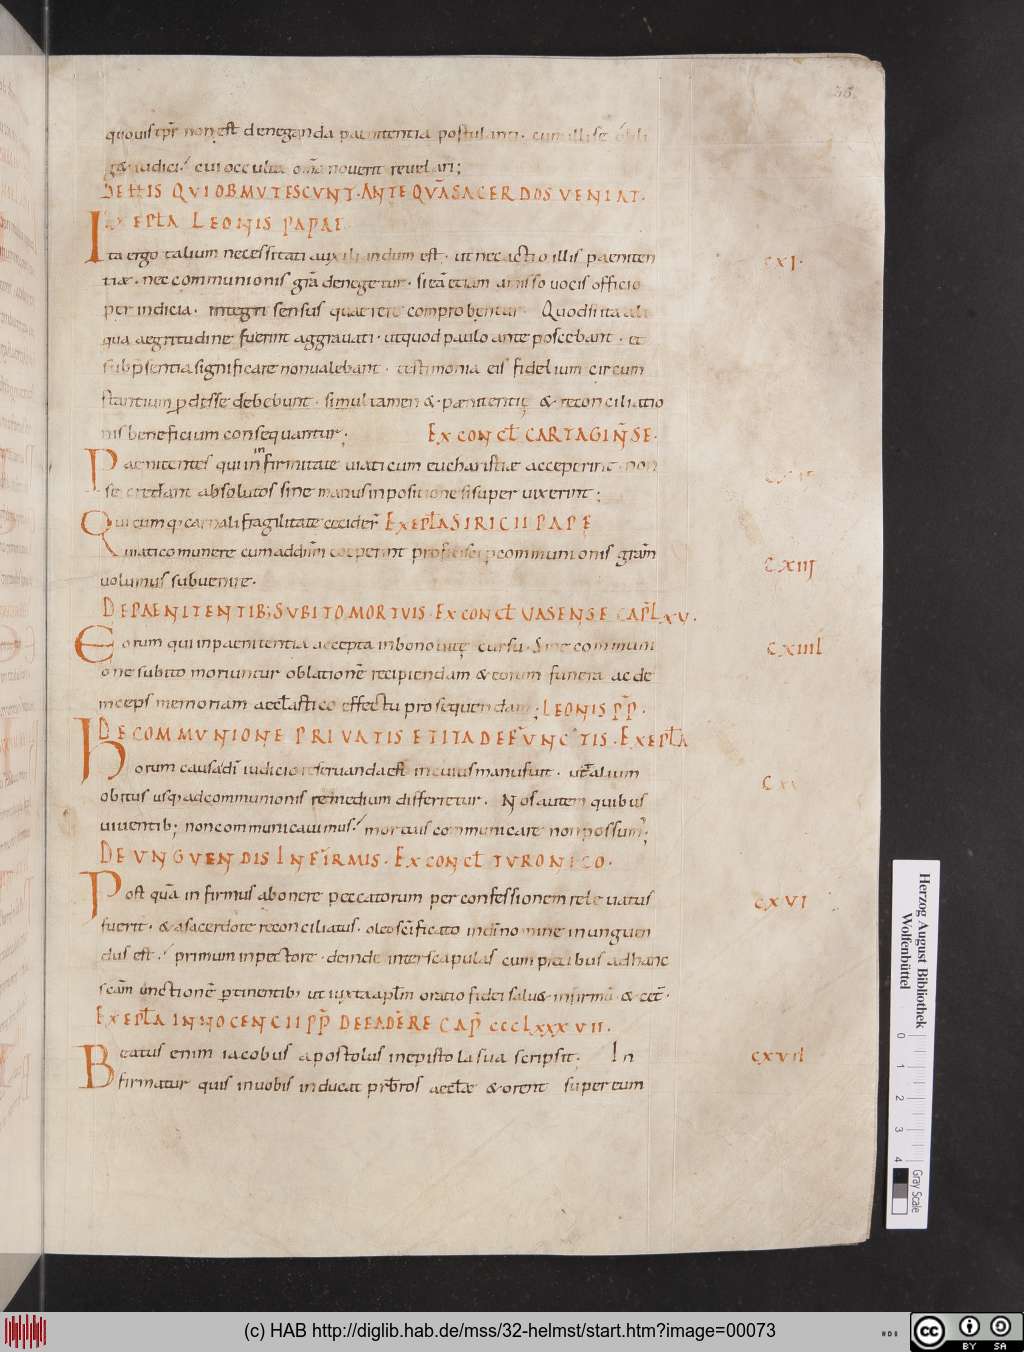 quouis tp̄r non est deneganda paenitentia postulanti. cum illi se obli
g& iudici. cui occulta om̄a nouerit reuelari;
DE HIS QUI OBMUTESCUNT. ANTE QUĀ SACERDOS VENIAT.
EX EPLA LEONIS PAPAE
Ita ergo talium necessitati auxiliandum est. ut nec actio illis paeniten CXI.
tiae. nec communionis gr̄a denegetur. si eā etiam amisso uocis officio
per indicia. integri sensus quaerere comprobentur. Quod si ita ali
qua aegritudine fuerint aggrauati. ut quod paulo ante poscebant. et
sub p̄sentia significare non ualebant. testimonia eis fidelium circum
stantium prodesse debebunt. simul tamen & paenitentię & reconciliatio
nis beneficium consequantur;
EX CONCL CARTAGIN̄SE.
Paenitentes qui in infirmitate uiaticum eucharistiae acceperint. non
se credant absolutos sine manus inpositione si super uixerint;
Qui cum q; carnali fragilitate cecider̄ EX EPLA SIRICII PAPĘ
uiatico munere cum ad dn̄m coeperint proficisci p communionis grām CXIII
uolumus subuenire.
DE PAENITENTIB; SUBITO MORTUIS. EX CONCL VASENSE CAPL XV.
Eorum qui in paenitentia accepta in bono uitę cursu. Sine communi CXIIII
one subito moriuntur oblationē recipiendam & eorum funera ac de
inceps memoriam aecl̄astico effectu prosequendam; LEONIS PP̄.
DE COMMUNIONE PRIVATIS ET ITA DEFUNCTIS. EX EPLA
Horum causa dī iudicio reseruanda est in cuius manu fuit. ut talium
obitus usq; ad communionis remedium differretur. Nos autem quibus
uiuentib; non communicauimus. mortuis communicare non possum;
DE UNGUENDIS INFIRMIS. EX CONCL TURONICO.
Post quā infirmus abonere peccatorum per confessionem releuatus CXVI
fuerit. & a sacerdote reconciliatus. oleo sc̄ificato in dn̄i nomine inunguen
dus est. primum in pectore. deinde inter scapulas cum precibus ad hanc
sc̄am unctionē ptinentib; ut iuxta apl̄m oratio fidei salu& infirmū & cet̄.
EX EPLA INNOCENCII PP̄ DE EADĒ RE CAP̄ CCCLXXXVII.
Beatus enim iacobus apostolus in epistola sua scripsit. In CXVII
firmatur quis in uobis inducat prb̄ros aecl̄ae & orent super eum
Herzog August Bibliothek
Wolfenbüttel
0 1 2 3 4
Gray Scale
(c) HAB http://diglib.hab.de/mss/32-helmst/start.htm?image=00073
cc BY SA